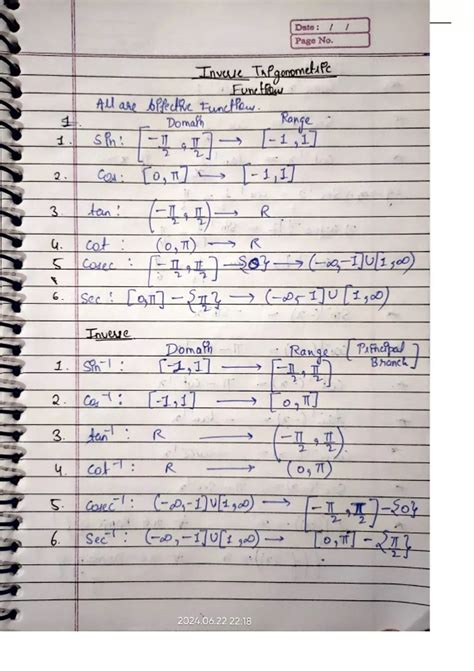 Date: / /
Page No.
Inverse Trigonometric
Function
All are bijective Function.
1. Domain Range
1. Sin: [-π/2, π/2] → [-1, 1]
2. Cos: [0, π] → [-1, 1]
3 tan: (-π/2, π/2) → R
4. cot: (0, π) → R
5 Cosec: [-π/2, π/2] - {0} → (-∞, -1] ∪ [1, ∞)
6. Sec: [0, π] - {π/2} → (-∞, 1] ∪ [1, ∞)
Inverse
Domain Range [Principal Branch]
1. Sin⁻¹: [-1, 1] → [-π/2, π/2]
2. Cos⁻¹: [-1, 1] → [0, π]
3. tan⁻¹: R → (-π/2, π/2)
4. Cot⁻¹: R → (0, π)
5. Cosec⁻¹: (-∞, -1] ∪ [1, ∞) → [-π/2, π/2] - {0}
6. Sec⁻¹: (-∞, -1] ∪ [1, ∞) → [0, π] - {π/2}
2024.06.22 22:18